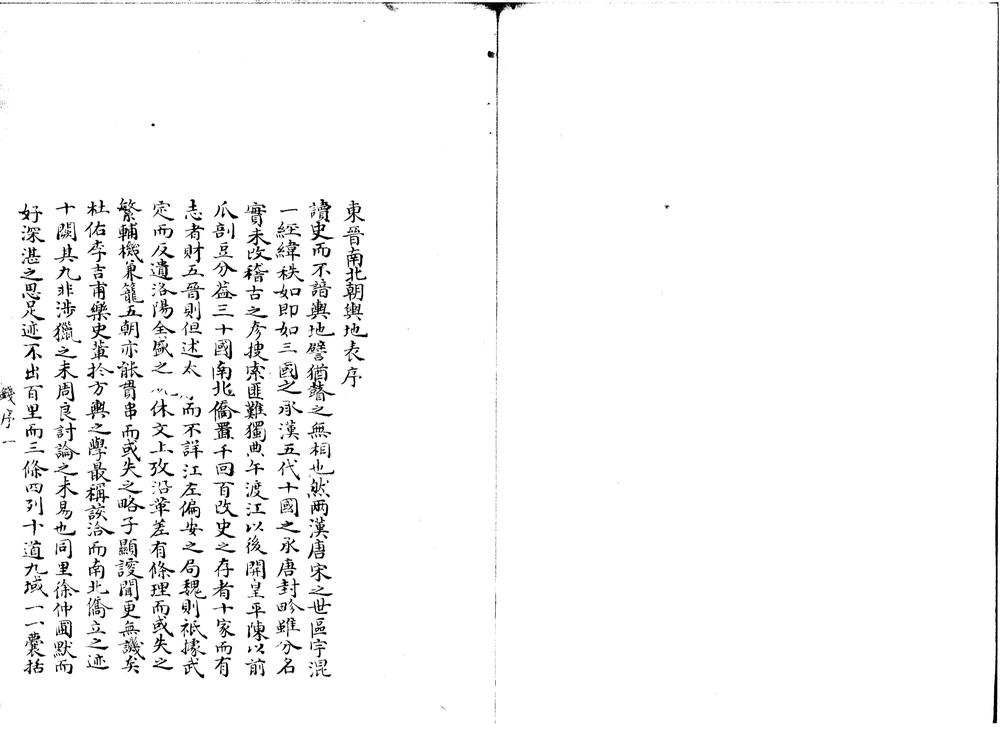 東晉南北朝輿地表序
讀史而不諳輿地譬猶瞽之無相也然兩漢唐宋之世區宇混
一經緯秩如即如三國之承漢五代十國之承唐封畛雖分名
實未改稽古之彥搜索匪難獨典午渡江以後開皇平陳以前
瓜剖豆分益三十國南北僑置千回百改史之存者十家而有
志者財五晉則但述太而不詳江左偏安之局魏則祇據武
定而反遺洛陽全盛之休文上攷沿革差有條理而或失之
繁輔機兼籠五朝亦能貫串而或失之略子顯謏聞更無譏矣
杜佑李吉甫樂史輩於方輿之學最稱該洽而南北僑立之迹
十闕其九非涉獵之未周良討論之未易也同里徐仲圃默而
好深湛之思足迹不出百里而三條四列十道九域一一囊括
錢序一